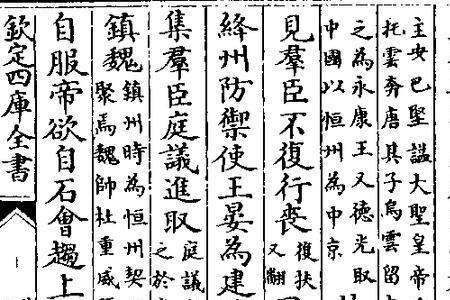 主安巴堅諡大聖皇帝
托雲奔唐其子烏雲留
之為永康王又德光取
中國以恒州為中京
見羣臣不復行喪復扶又翻
絳州防禦使王晏為建
集羣臣庭議進取庭議之於
鎮魏鎮州時為恒州契聚焉魏帥杜重威
自服帝欲自石會趨上
欽定四庫全書